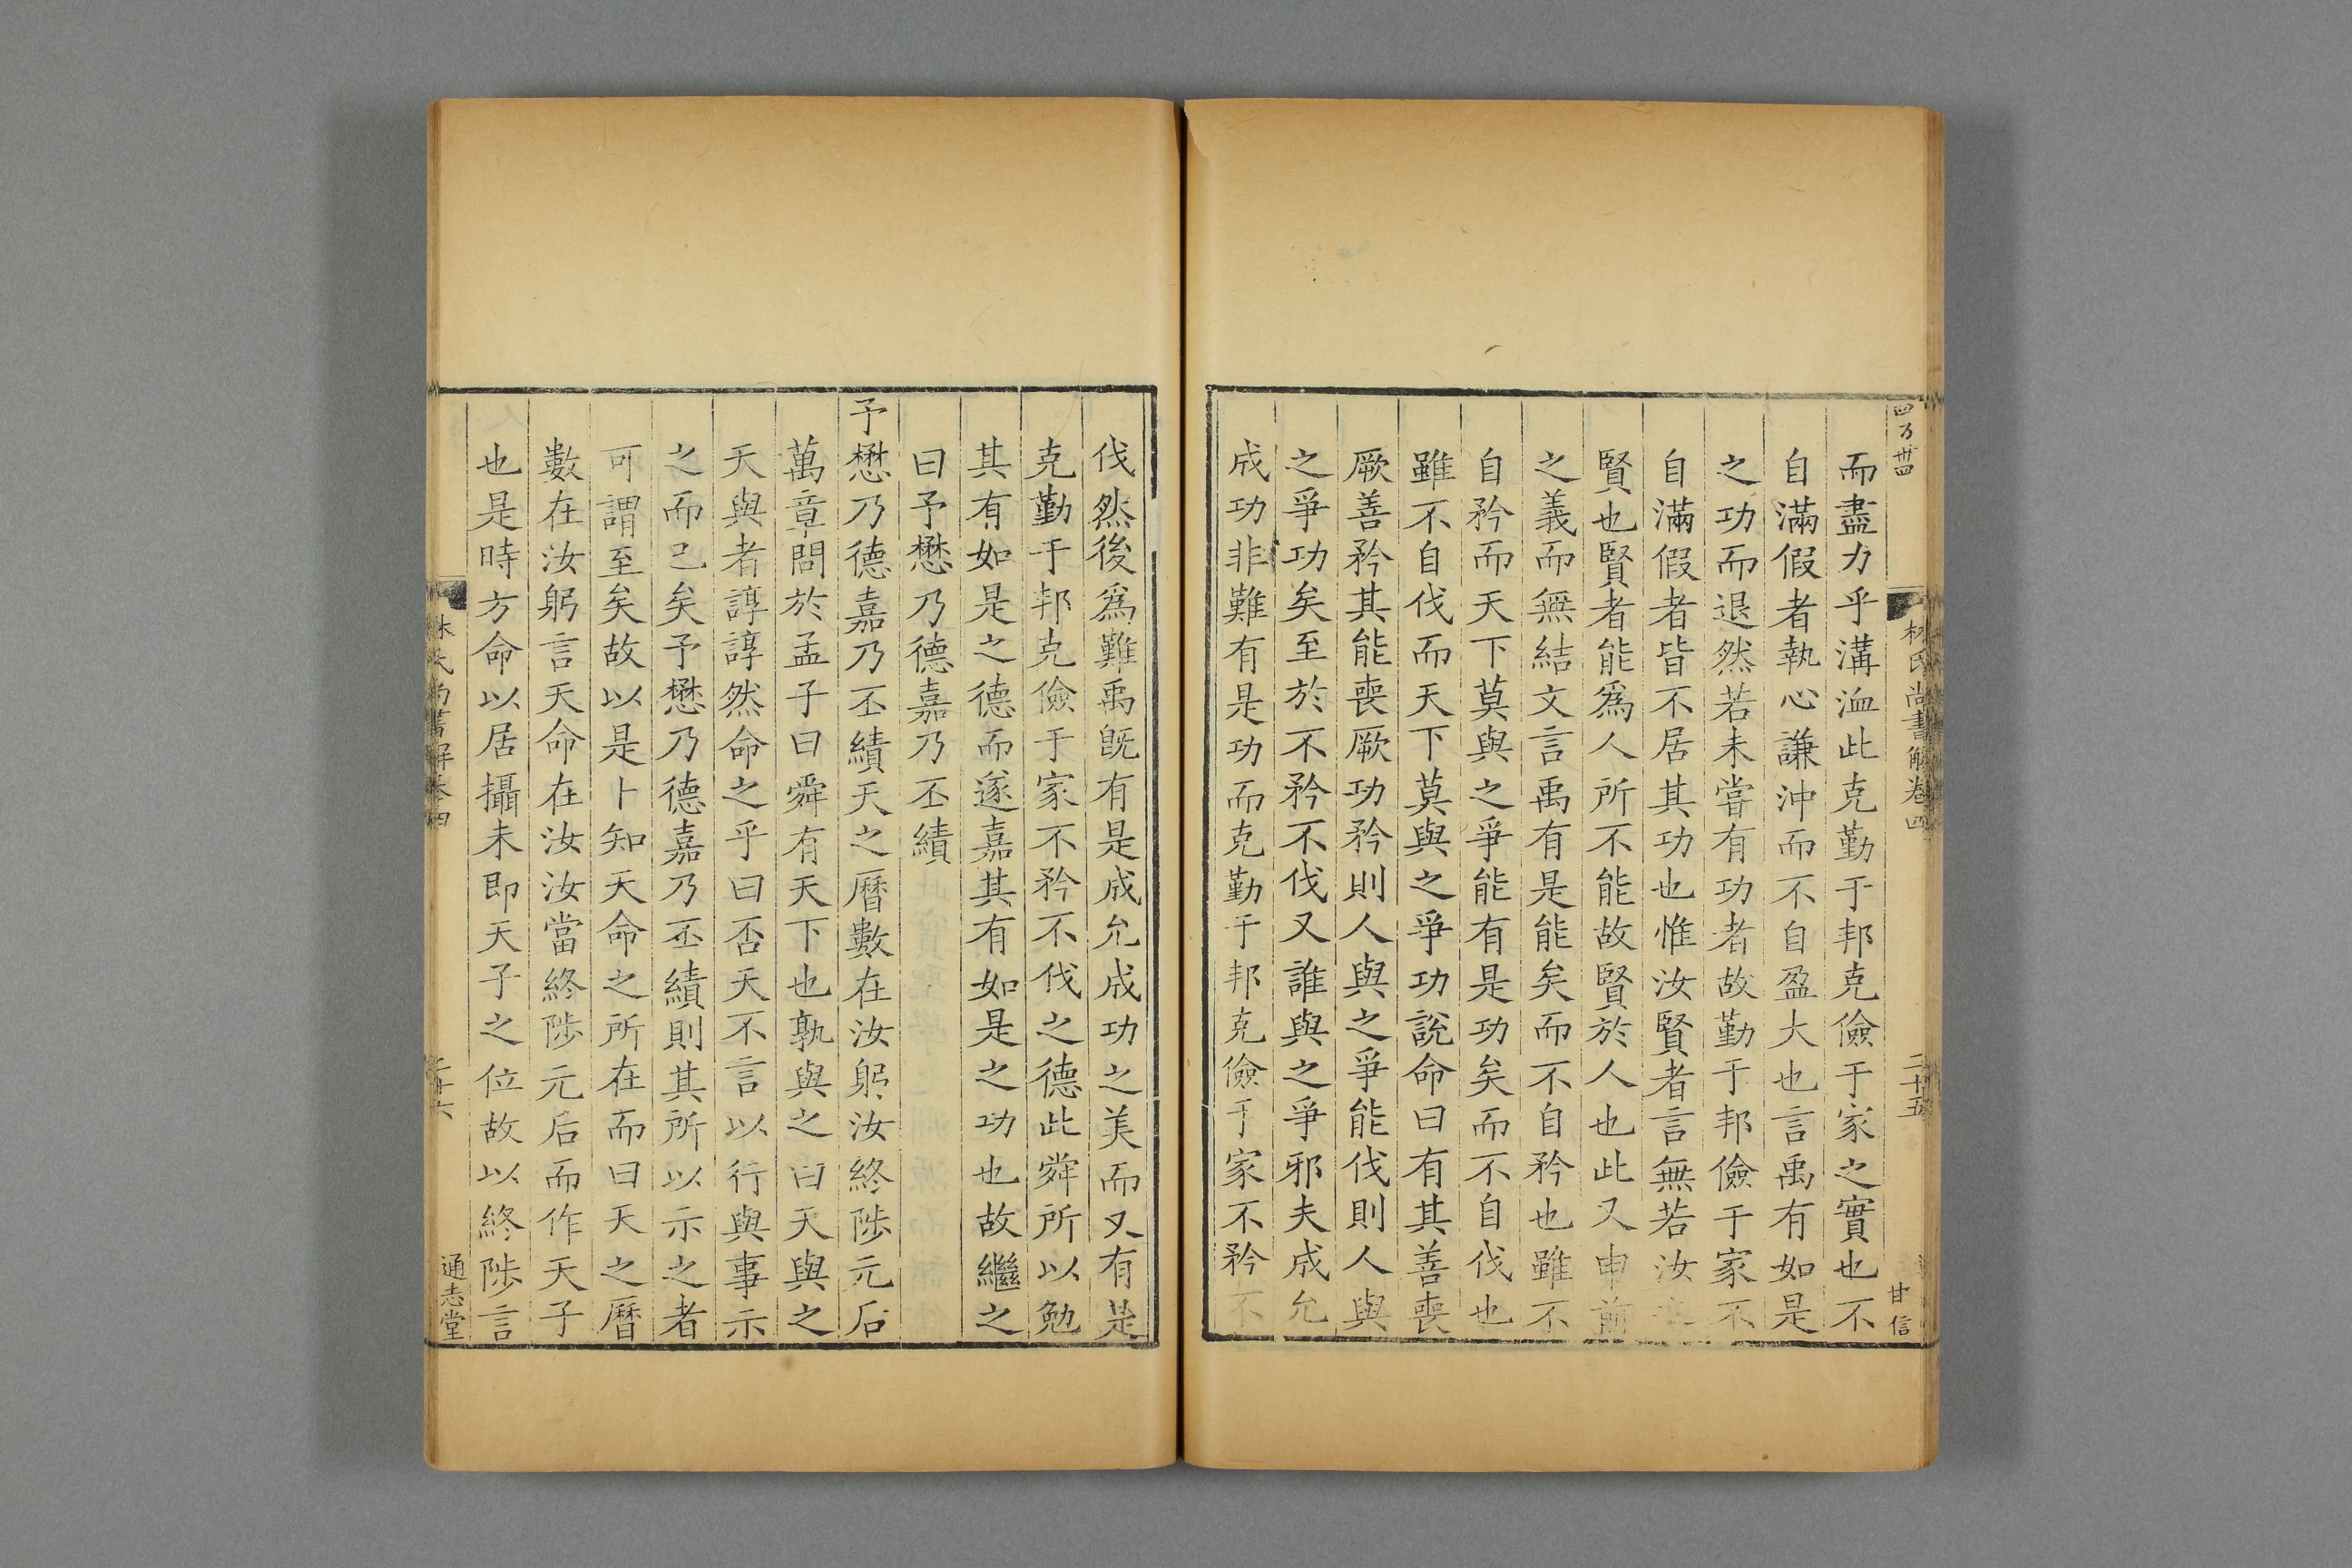 林氏尚書解卷四
二十五
甘信
而盡力乎溝洫此克勤于邦克儉于家之實也不
自滿假者執心謙沖而不自盈大也言禹有如是
之功而退然若未嘗有功者故勤于邦儉于家不
自滿假者皆不居其功也惟汝賢者言無若汝
賢也賢者能爲人所不能故賢於人也此又申前
之義而無結文言禹有是能矣而不自矜也雖不
自矜而天下莫與之爭能有是功矣而不自伐也
雖不自伐而天下莫與之爭功說命曰有其善喪
厥善矜其能喪厥功矜則人與之爭能伐則人與
之爭功矣至於不矜不伐又誰與之爭邪夫成允
成功非難有是功而克勤于邦克儉于家不矜不
伐然後爲難禹既有是成允成功之美而又有是
克勤于邦克儉于家不矜不伐之德此舜所以勉
其有如是之德而遂嘉其有如是之功也故繼之
曰予懋乃德嘉乃丕績
予懋乃德嘉乃丕績天之曆數在汝躬汝終陟元后
萬章問於孟子曰舜有天下也孰與之曰天與之
天與者諄諄然命之乎曰否天不言以行與事示
之而已矣予懋乃德嘉乃丕績則其所以示之者
可謂至矣故以是卜知天命之所在而曰天之曆
數在汝躬言天命在汝汝當終陟元后而作天子
也是時方命以居攝未即天子之位故以終陟言
林氏尚書解卷四
二十六
通志堂